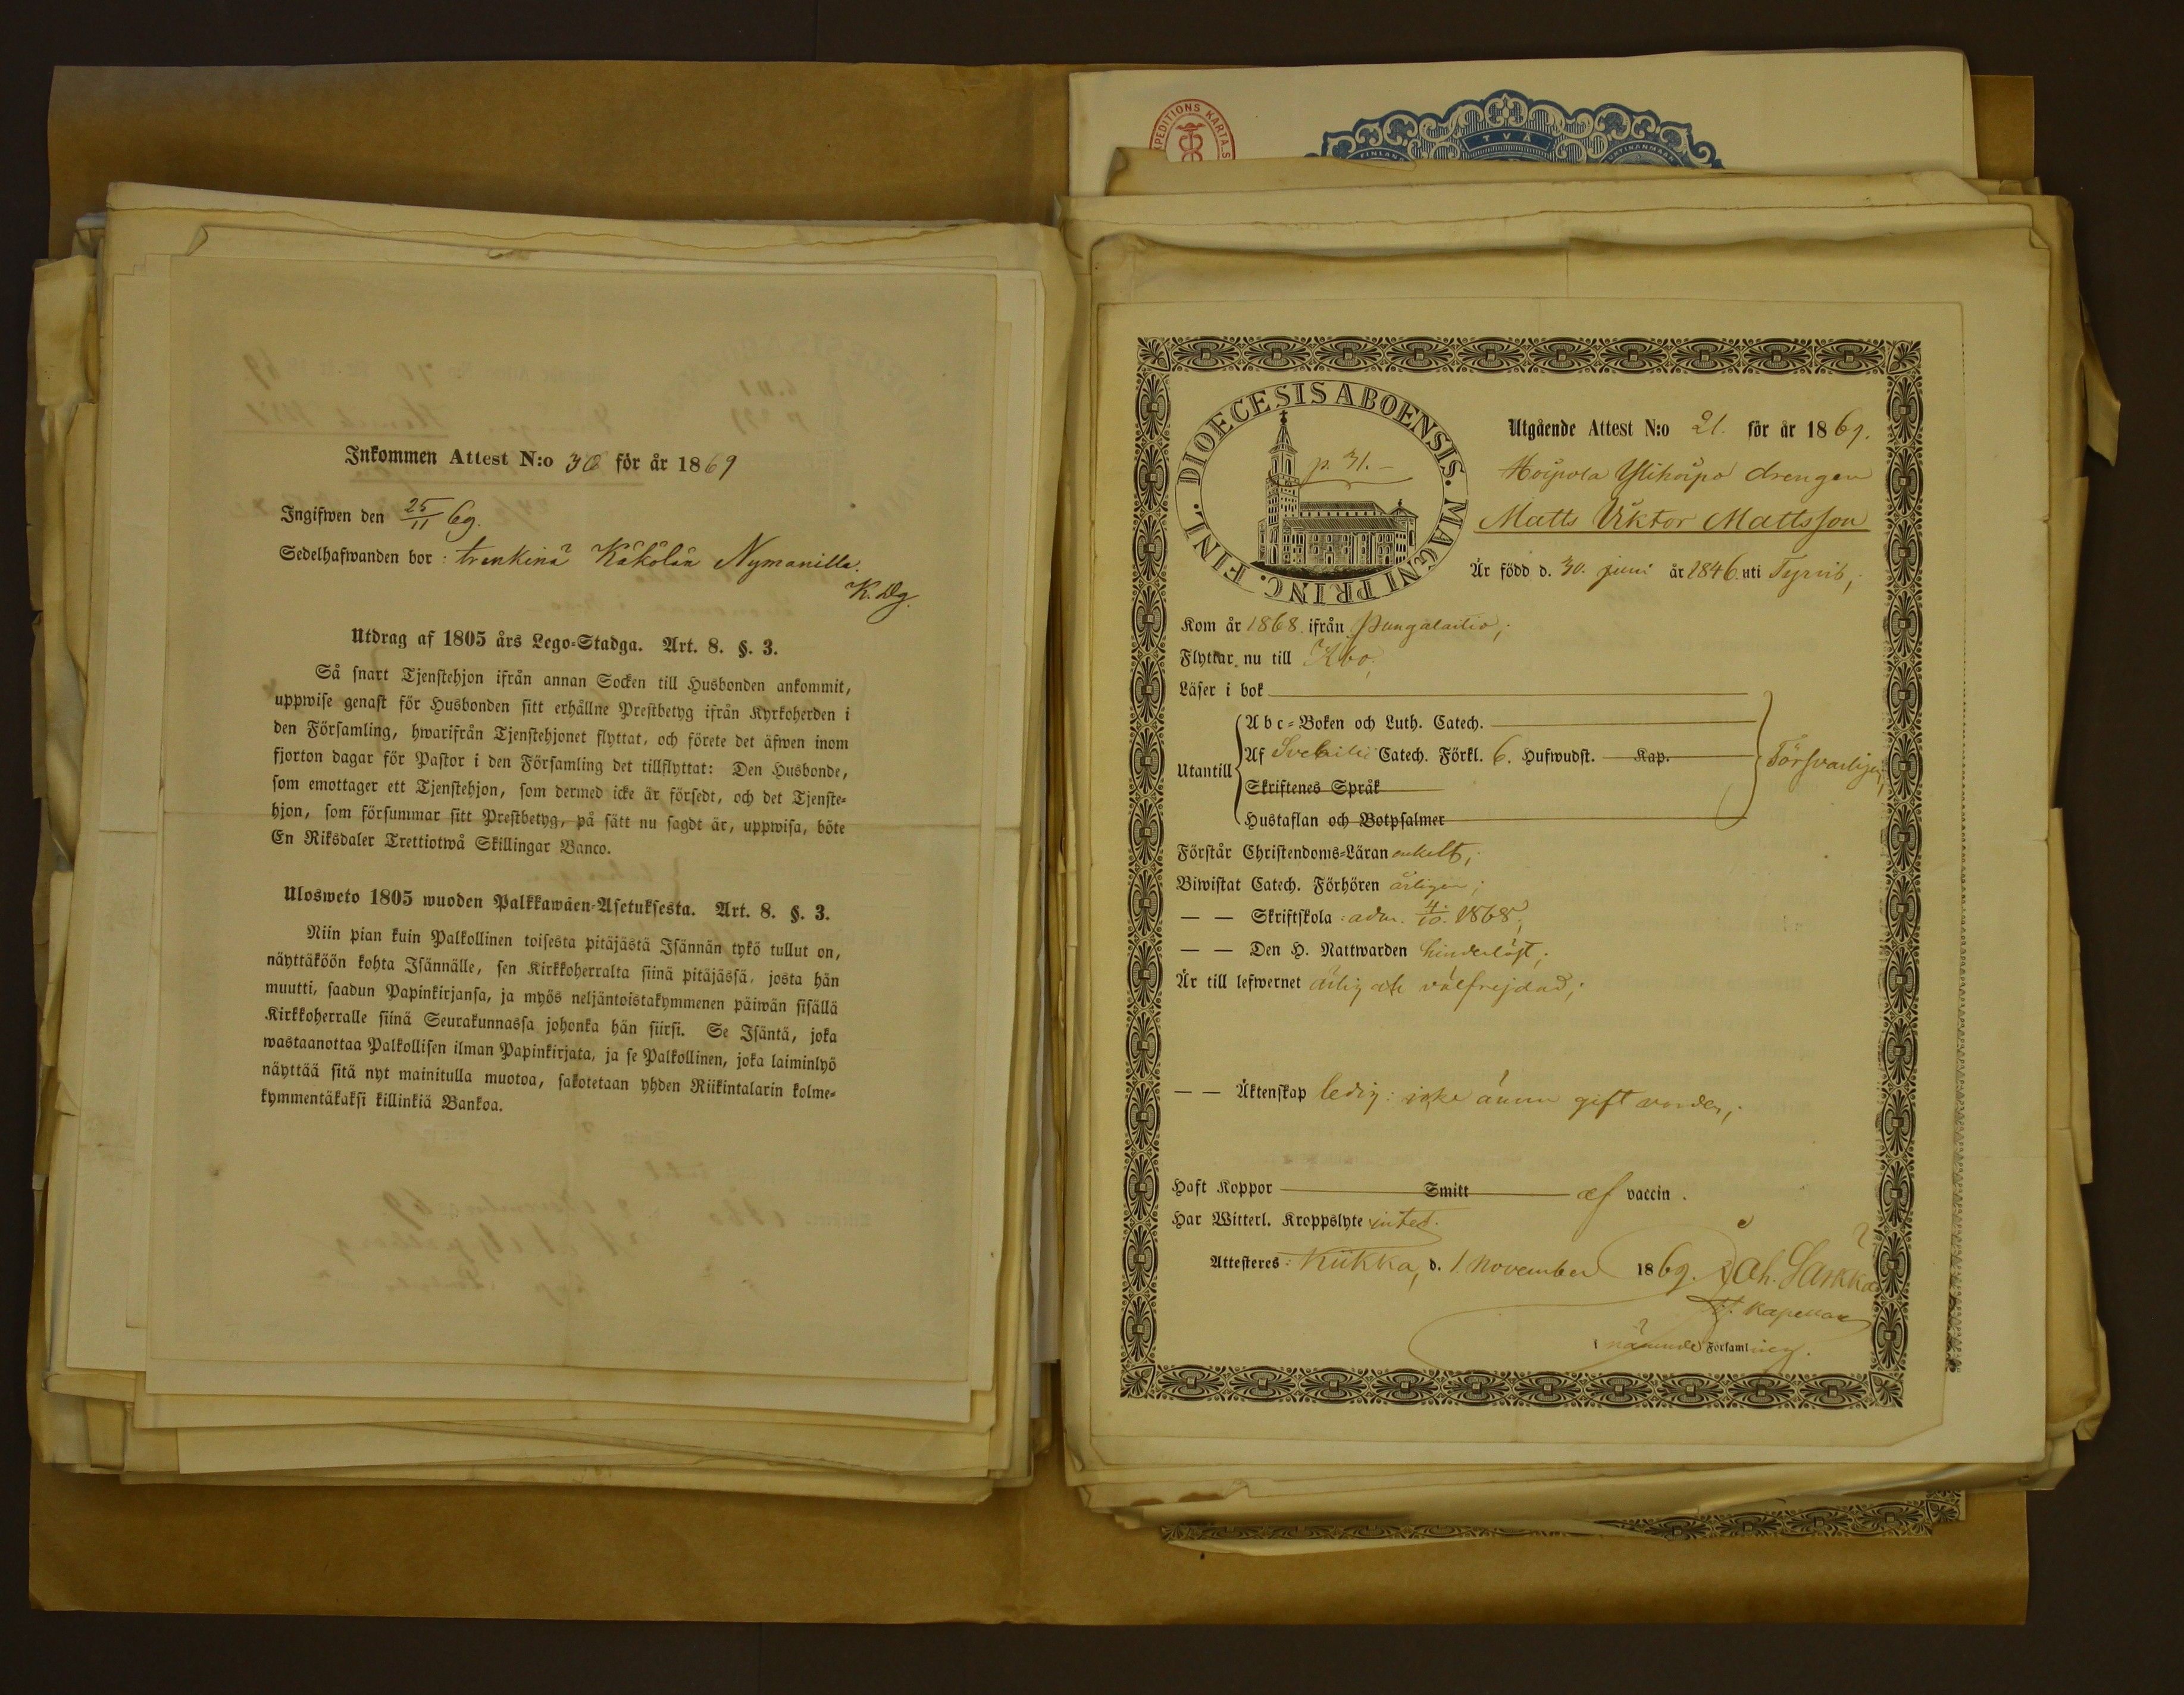 Inkommen Attest N:o 30 för år 1869
Ingifwen den 25/11 69.
Sedelhafwanden bor: trenkinä Käkölän Nymanilla.
K. Dg.
Utdrag af 1805 års Lego-Stadga. Art. 8. §. 3.
Så snart Tjenstehjon ifrån annan Socken till Husbonden ankommit,
uppwise genast för Husbonden sitt erhållne Prestbetyg ifrån Kyrkoherden i
den Församling, hwarifrån Tjenstehjonet flyttat, och förete det äfwen inom
fjorton dagar för Pastor i den Församling det tillflyttat: Den Husbonde,
som emottager ett Tjenstehjon, som dermed icke är försedt, och det Tjenste-
hjon, som försummar sitt Prestbetyg, på sätt nu sagdt är, uppwisa, böte
En Riksdaler Trettiotwå Skillingar Banco.
Ulosweto 1805 wuoden Palkkawäen-Asetuksesta. Art. 8. §. 3.
Niin pian kuin Palkollinen toisesta pitäjästä Isännän tykö tullut on,
näyttäköön kohta Isännälle, sen Kirkkoherralta siinä pitäjässä, josta hän
muutti, saadun Papinkirjansa, ja myös neljäntoistakymmenen päiwän sisällä
Kirkkoherralle siinä Seurakunnassa johonka hän siirsi. Se Isäntä, joka
wastaanottaa Palkollisen ilman Papinkirjata, ja se Palkollinen, joka laiminlyö
näyttää sitä nyt mainitulla muotoa, sakotetaan yhden Riikintalarin kolme-
kymmentäkaksi killinkiä Bankoa.
EXPEDITIONS KARTA.S
TVÅ
FINLAN
DIOECESIS ABOENSIS. MAGNI PRINC. FINL.
p. 31.
Utgående Attest N:o 21. för år 1869.
Hoipola Ylihoipo drengen
Matts Viktor Mattsson
Är född d. 30. juni år 1846. uti Tyrvis,
Kom år 1868 ifrån Pungalaitio;
Flyttar nu till Åbo.
Läser i bok
Utantill
Abc-Boken och Luth. Catech.
Af Svebilii Catech. Förkl. 6. Hufwudst. Kap.
Skriftenes Språk
Hustaflan och Botpsalmer
Försvarligen;
Förstår Christendoms-Läran enkelt;
Biwistat Catech. Förhören årligen;
— — Skriftskola: adm. 4/10. 1868;
— — Den H. Nattwarden hinderlöst;
Är till lefwernet ärlig och välfrejdad;
— — Äktenskap ledig: icke ännu gift vorden;
Haft Koppor Smitt af vaccin.
Har Witterl. Kroppslyte intet.
Attesteres: Kiikka, d. 1 November 1869. Joh. Sarkka
V. Kapellan
i nämnde Församling.